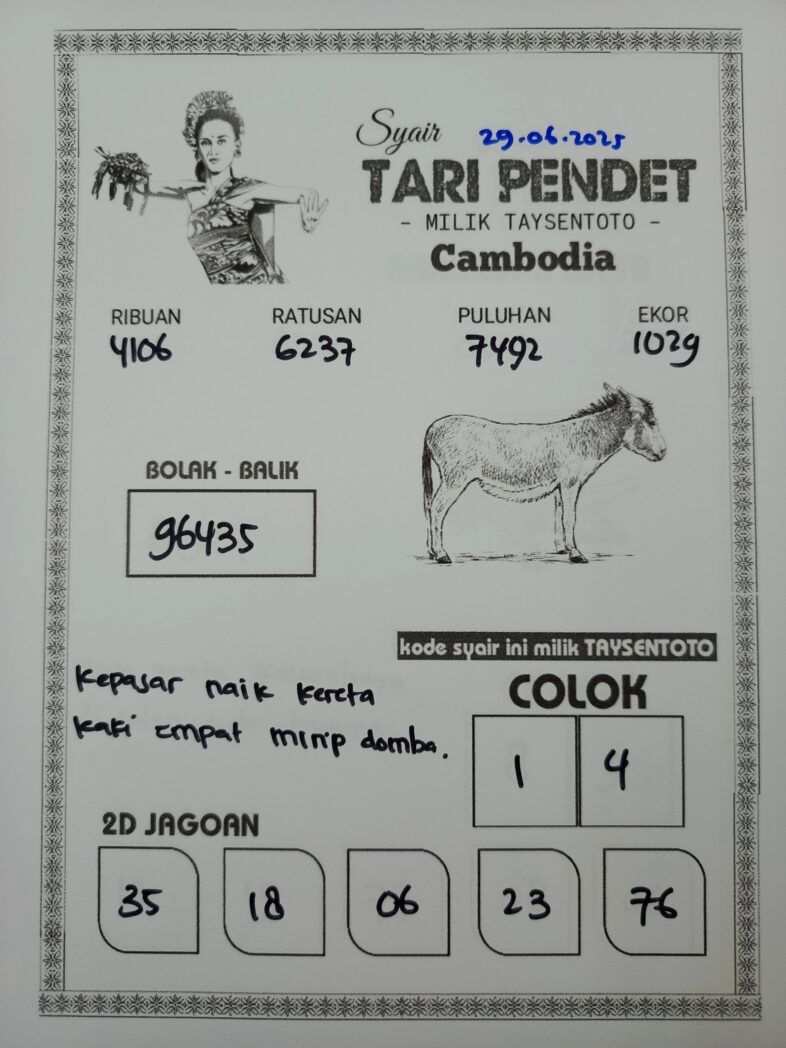 Syair 29.06.2025
TARI PENDET
- MILIK TAYSENTOTO -
Cambodia
RIBUAN RATUSAN PULUHAN EKOR
4106 6237 7492 1029
BOLAK - BALIK
96435
kode syair ini milik TAYSENTOTO
Kepasar naik kereta
kaki empat mirip domba.
COLOK
1 4
2D JAGOAN
35 18 06 23 76